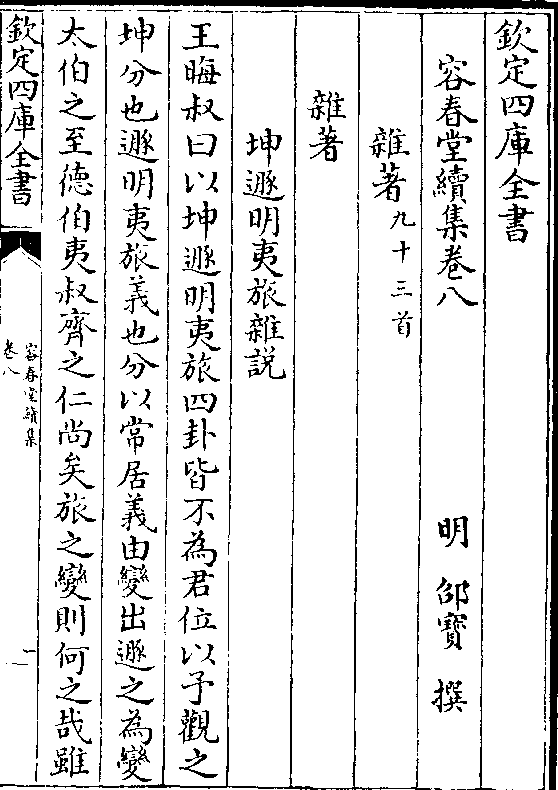 欽定四庫全書
容春堂續集卷八
明 邵寶 撰
雜著九十三首
雜著
坤遯明夷旅雜説
王晦叔曰以坤遯明夷旅四卦皆不為君位以予觀之
坤分也遯明夷旅義也分以常居義由變出遯之為變
太伯之至德伯夷叔齊之仁尚矣旅之變則何之哉雖
欽定四庫全書
容春堂續集
卷八
一